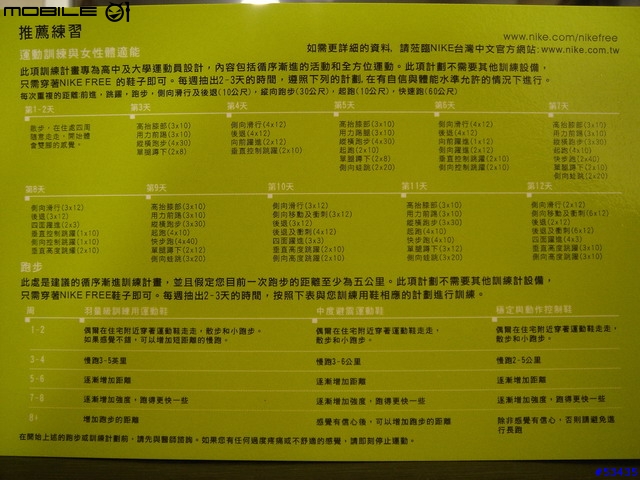 MOBILE01
推薦練習
www.nike.com/nikefree
運動訓練與女性體適能
如需更詳細的資料, 請蒞臨NIKE台灣中文官方網站: www.nike.com.tw
此項訓練計畫專為高中及大學運動員設計，內容包括循序漸進的活動和全方位運動。此項計劃不需要其他訓練設備，
只需穿著NIKE FREE 的鞋子即可。每週抽出2-3天的時間，遵照下列的計劃, 在有自信與體能水準允許的情況下進行。
每次重複的距離前進，跳躍，跑步，側向滑行及後退(10公尺)，縱向跑步(30公尺)，起跑(10公尺)，快速跑(60公尺)
第1-2天
跑步，在住處四周
隨意走走，開始體
會雙腳的感覺。
第3天
高抬膝部(3x10)
用力前踢(3x10)
縱橫跑步(4x30)
單腿蹲下(2x8)
第4天
側向滑行(4x12)
後退(4x12)
向前躍進(2x12)
垂直控制跳躍(2x10)
第5天
高抬膝部(3x10)
用力踢腿(3x10)
縱橫跑步(4x30)
起跑(2x10)
單腿蹲下(2x8)
側向蛙跳(2x20)
第6天
側向滑行(4x12)
後退(4x12)
向前躍進(2x12)
四面躍進(2x2)
垂直控制跳躍(2x10)
側向控制跳躍(2x10)
第7天
高抬膝部(3x10)
用力前踢(3x10)
縱橫跑步(3x30)
起跑(4x10)
快步跑(2x40)
單腿蹲下(3x10)
側向蛙跳(2x20)
第8天
側向滑行(3x12)
後退(3x12)
四面躍進(2x3)
垂直控制跳躍(1x10)
側向控制跳躍(1x10)
垂直高度跳躍(2x10)
第9天
高抬膝部(3x10)
用力前踢(3x10)
縱橫跑步(3x30)
起跑(4x10)
快步跑(4x40)
單腿蹲下(3x10)
側向蛙跳(3x20)
第10天
側向滑行(3x12)
側向移動及衝刺(3x12)
後退(3x12)
後退及衝刺(4x12)
四面躍進(3x3)
垂直高度跳躍(2x10)
側向高度跳躍(2x10)
第11天
高抬膝部(3x10)
用力前踢(3x10)
縱橫跑步(3x30)
起跑(4x10)
快步跑(4x10)
單腿蹲下(3x10)
側向蛙跳(3x20)
第12天
側向滑行(2x12)
側向移動及衝刺(6x12)
後退(2x12)
後退及衝刺(6x12)
四面躍進(4x3)
垂直高度跳躍(3x10)
側向高度跳躍(3x10)
跑步
此處是建議的循序漸進訓練計畫，並且假定您目前一次跑步的距離至少為五公里。此項計劃不需要其他訓練計設備，
只需穿著NIKE FREE鞋子即可。每週抽出2-3天的時間，按照下表與您訓練用鞋相應的計劃進行訓練。
周
羽量級訓練用運動鞋
中度避震運動鞋
穩定與動作控制鞋
1-2
偶爾在住宅附近穿著運動鞋走走，散步和小跑步。
如果感覺不錯，可以增加短距離的慢跑。
偶爾在住宅附近穿著運動鞋走走，
散步和小跑步。
偶爾在住宅附近穿著運動鞋走走，
散步和小跑步。
3-4
慢跑3-5英里
慢跑3-6公里
慢跑2-5公里
5-6
逐漸增加距離
逐漸增加距離
逐漸增加距離
7-8
逐漸增加強度，跑得更快一些
逐漸增加強度，跑得更快一些
逐漸增加強度，跑得更快一些
8+
增加跑步的距離
感覺有信心後，可以增加跑步的距離
除非感覺有信心，否則請避免進
行長跑
在開始上述的跑步或訓練計劃前，請先與醫師諮詢。如果您有任何過度疼痛或不舒適的感覺，請即刻停止運動。